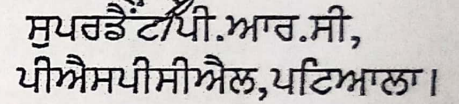 ਸੁਪਰਡੈਂਟ/ਪੀ.ਆਰ.ਸੀ,
ਪੀਐਸਪੀਸੀਐਲ,ਪਟਿਆਲਾ।